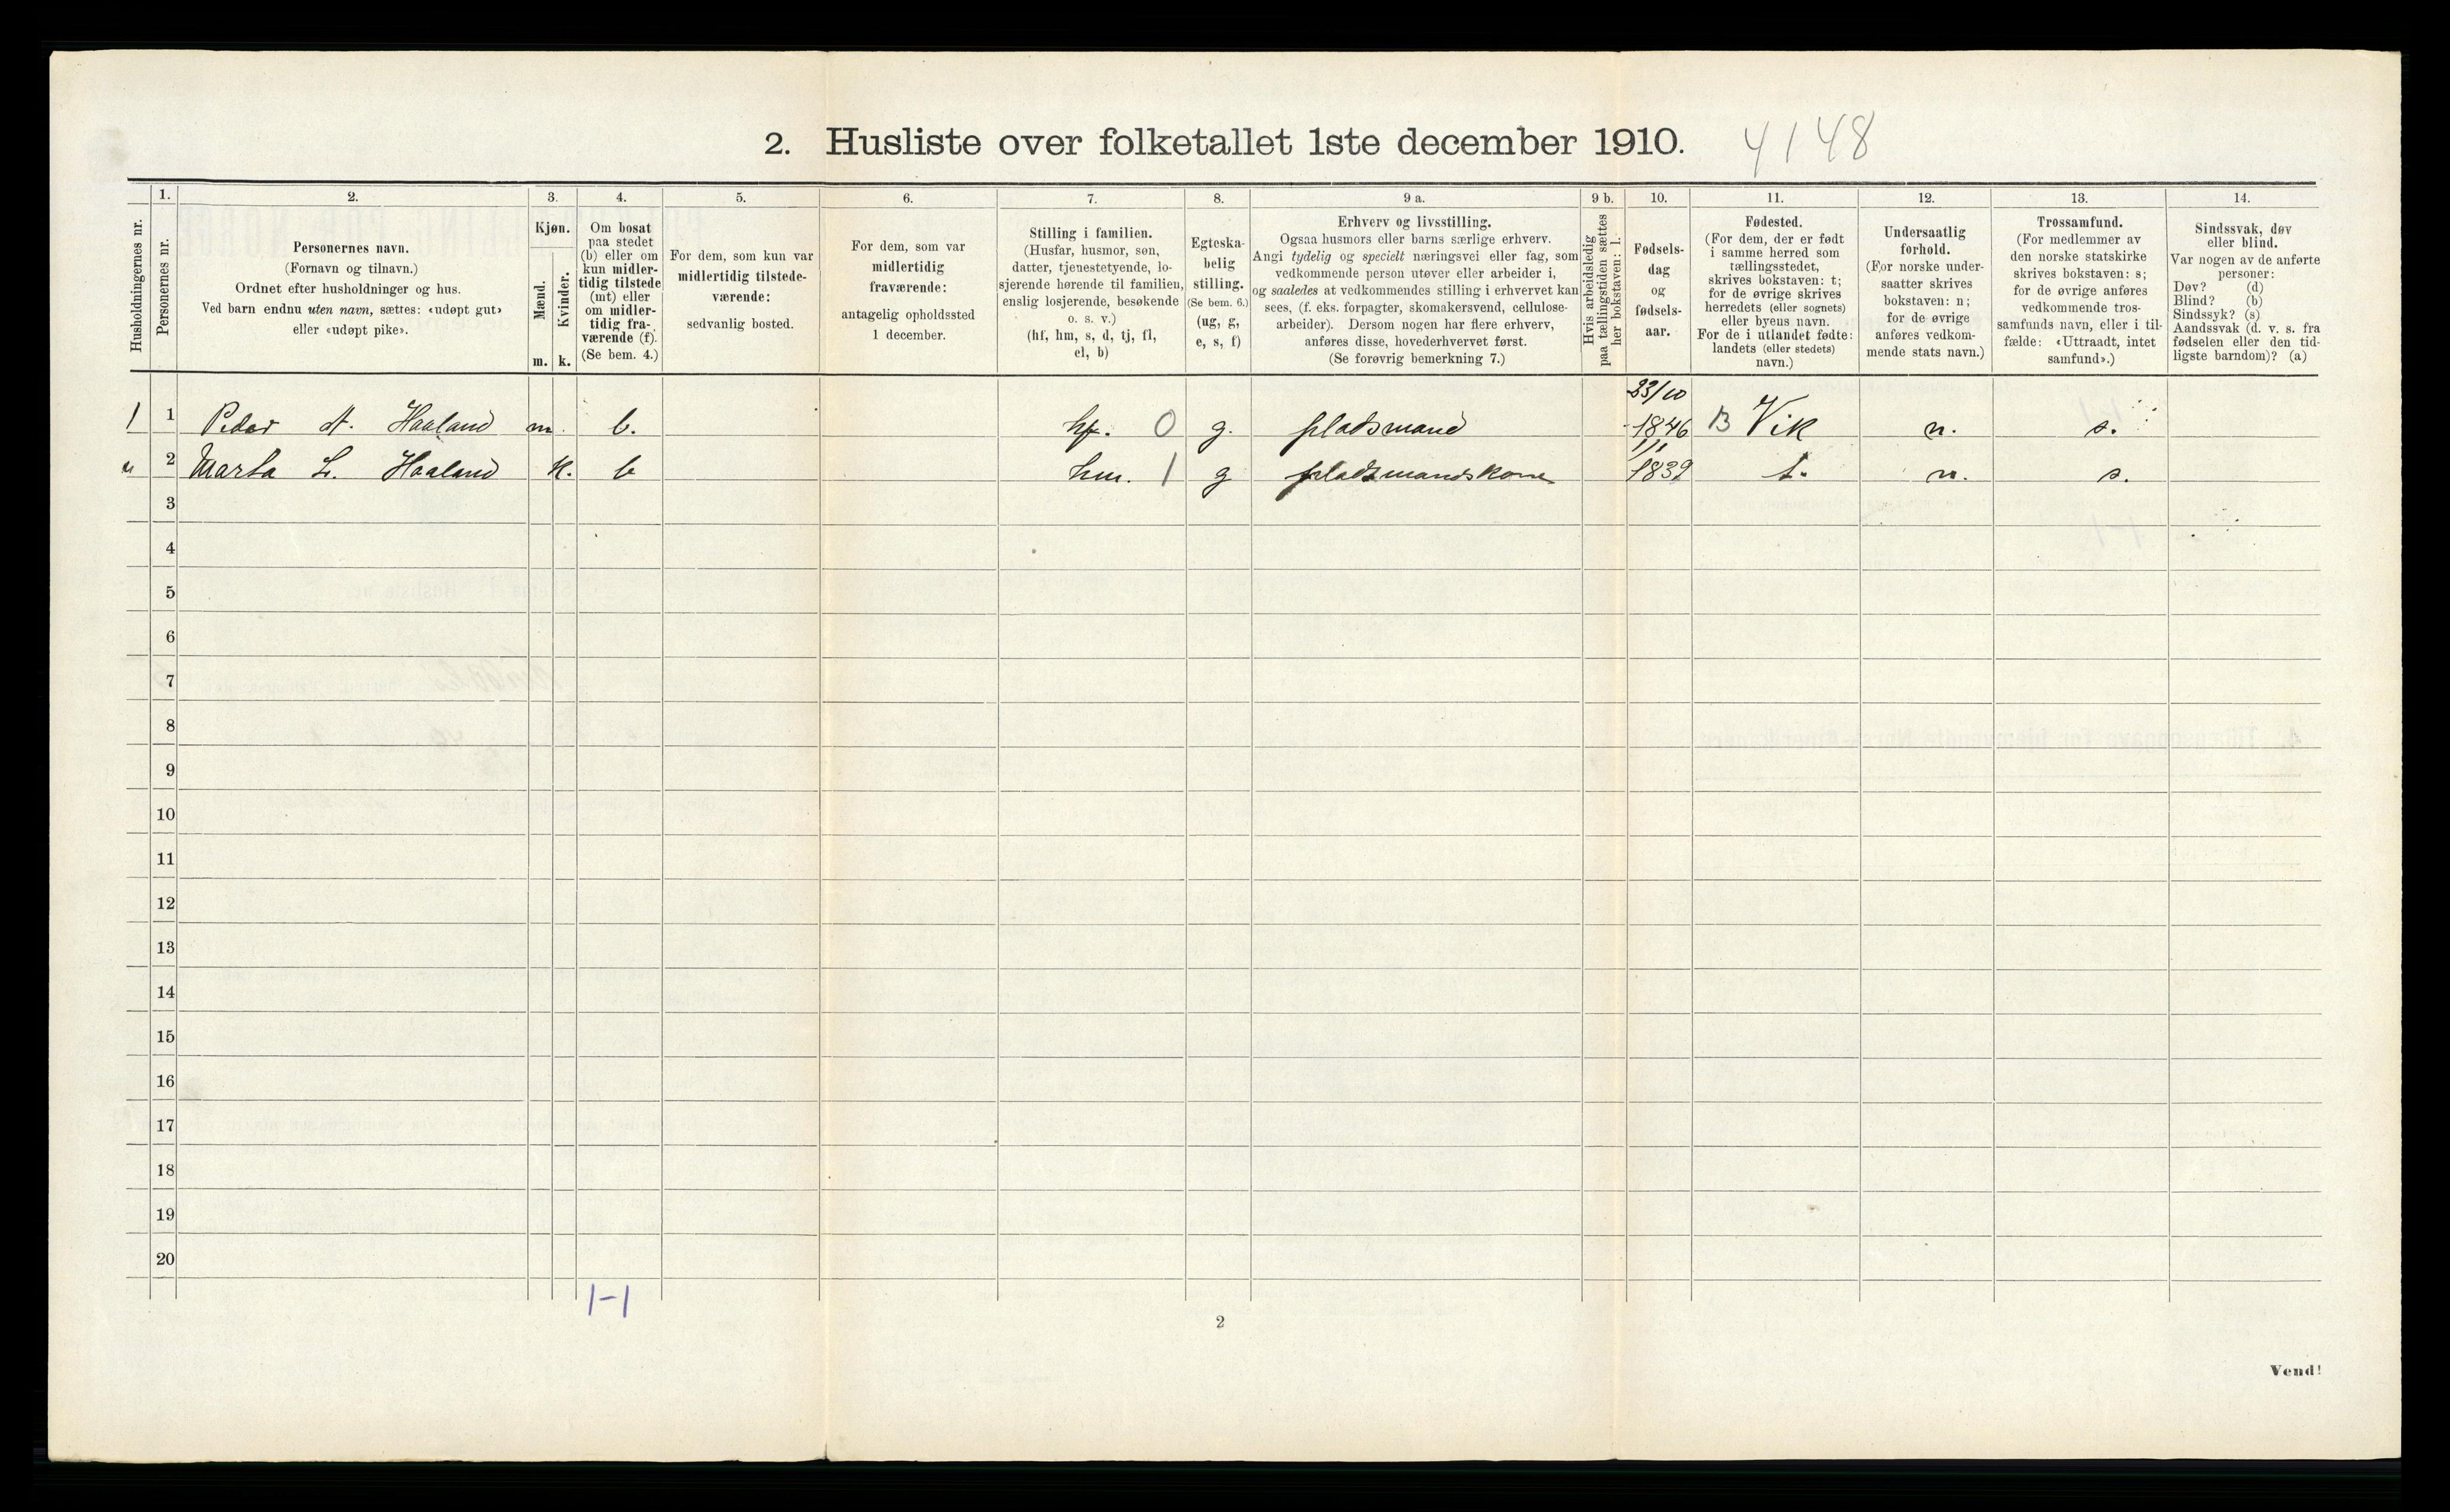 2. Husliste over folketallet 1ste december 1910. 4148
Husholdningernes nr.
1.
Personernes nr.
2.
Personernes navn.
(Fornavn og tilnavn.)
Ordnet efter husholdninger og hus.
Ved barn endnu uten navn, sættes: «udøpt gut»
eller «udøpt pike».
3.
Kjøn.
Mænd.
Kvinder.
m. k.
4.
Om bosat
paa stedet
(b) eller om
kun midler-
tidig tilstede
(mt) eller
om midler-
tidig fra-
værende (f).
(Se bem. 4.)
5.
For dem, som kun var
midlertidig tilstede-
værende:
sedvanlig bosted.
6.
For dem, som var
midlertidig
fraværende:
antagelig opholdssted
1 december.
7.
Stilling i familien.
(Husfar, husmor, søn,
datter, tjenestetyende, lo-
sjerende hørende til familien,
enslig losjerende, besøkende
o. s. v.)
(hf, hm, s, d, tj, fl,
el, b)
8.
Egteska-
belig
stilling.
(Se bem. 6.)
(ug, g,
e, s, f)
9 a.
Erhverv og livsstilling.
Ogsaa husmors eller barns særlige erhverv.
Angi tydelig og specielt næringsvei eller fag, som
vedkommende person utøver eller arbeider i,
og saaledes at vedkommendes stilling i erhvervet kan
sees, (f. eks. forpagter, skomakersvend, cellulose-
arbeider). Dersom nogen har flere erhverv,
anføres disse, hovederhvervet først.
(Se forøvrig bemerkning 7.)
9 b.
Hvis arbeidsledig
paa tællingstiden sættes
her bokstaven: l.
10.
Fødsels-
dag
og
fødsels-
aar.
11.
Fødested.
(For dem, der er født
i samme herred som
tællingsstedet,
skrives bokstaven: t;
for de øvrige skrives
herredets (eller sognets)
eller byens navn.
For de i utlandet fødte:
landets (eller stedets)
navn.)
12.
Undersaatlig
forhold.
(For norske under-
saatter skrives
bokstaven: n;
for de øvrige
anføres vedkom-
mende stats navn.)
13.
Trossamfund.
(For medlemmer av
den norske statskirke
skrives bokstaven: s;
for de øvrige anføres
vedkommende tros-
samfunds navn, eller i til-
fælde: «Uttraadt, intet
samfund».)
14.
Sindssvak, døv
eller blind.
Var nogen av de anførte
personer:
Døv? (d)
Blind? (b)
Sindssyk? (s)
Aandssvak (d. v. s. fra
fødselen eller den tid-
ligste barndom)? (a)
1 1 Peder A. Haaland m. b. hf. 0 g. pladsmand 23/10 1846 B Vik n. s.
" 2 Marta L. Haaland k. b hm. 1 g pladsmandskone 1839 t. n. s.
3
4
5
6
7
8
9
10
11
12
13
14
15
16
17
18
19
20
1-1
2
Vend!